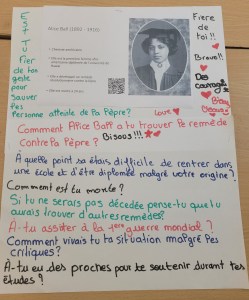 Alice Ball (1892 - 1916)
ES-TU
fier
de ton
geste
pour
sauver
les
personne atteinte de la lèpre ?
Fiere
de toi !!
Bravo !!
Des
Love
Bisous !!!
Comment Alice Ball a tu trouver le remède
contre la lèpre ?
À quelle point sa étais difficile de rentrer dans
une école et d'être diplomée malgré votre origine ?
Comment est tu morte ?
Si tu ne serais pas décédée pense-tu que tu
aurais trouver d'autres remèdes ?
A-tu assister à la 1ere guerre mondial ?
Comment vivais tu ta situation malgré les
critiques ?
A-tu eu des proches pour te soutenir durant tes
études ?